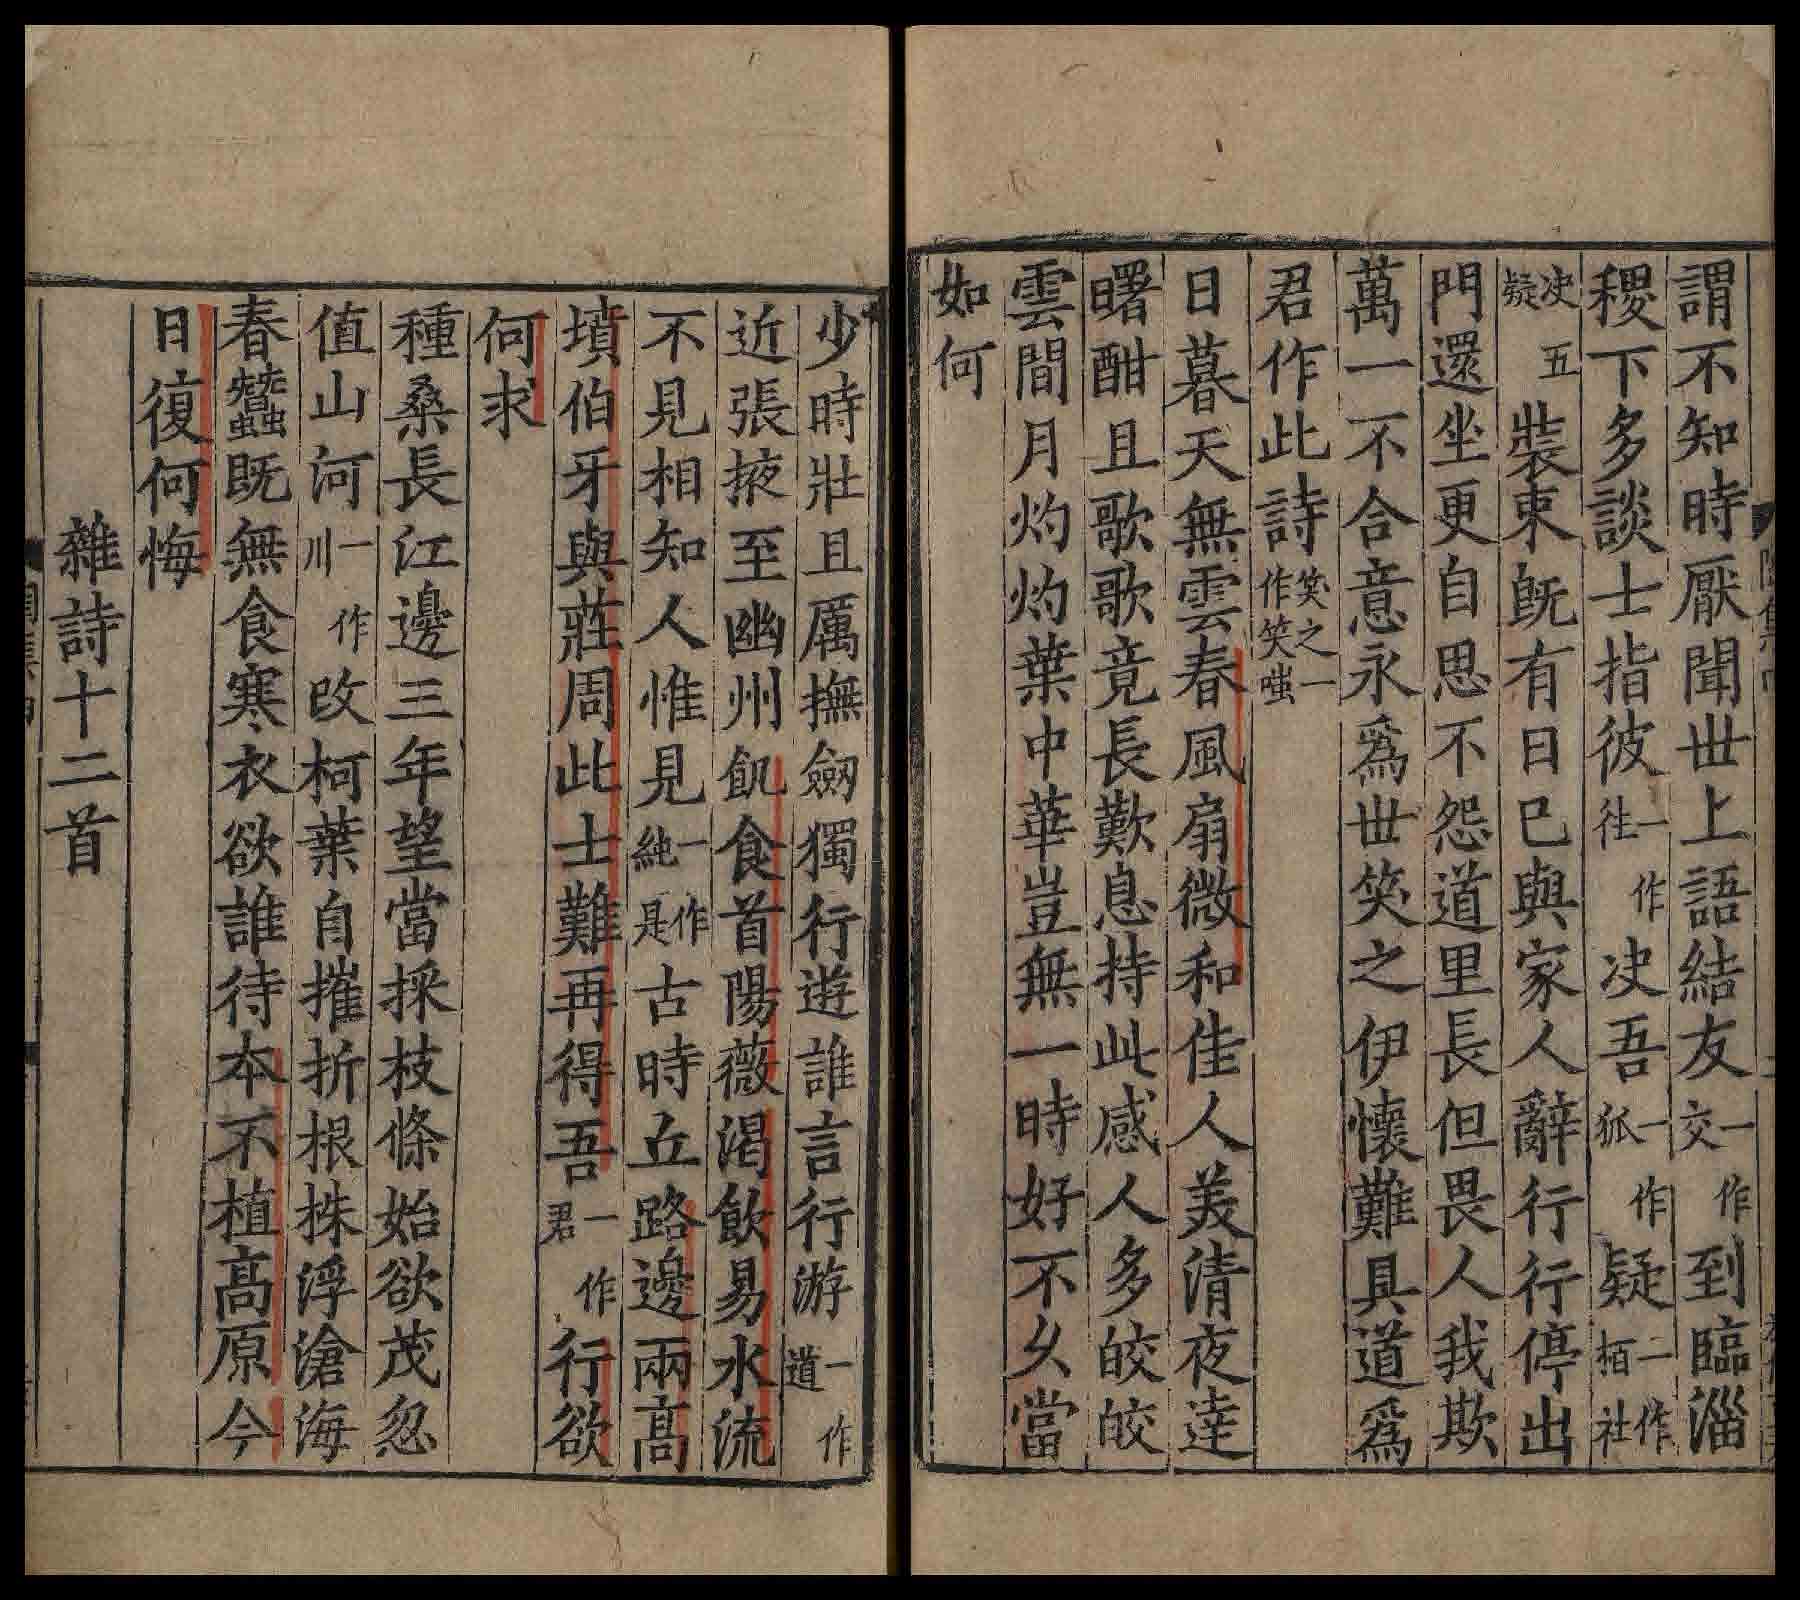 謂不知時厭聞世上語結友一作交到臨淄
稷下多談士指彼一作往決吾一作狐疑二作栢社
決疑五裝束旣有日已與家人辭行行停出
門還坐更自思不怨道里長但畏人我欺
萬一不合意永爲世笑之伊懷難具道爲
君作此詩笑之一作笑嗤
日暮天無雲春風扇微和佳人美清夜達
曙酣且歌歌竟長歎息持此感人多皎皎
雲間月灼灼葉中華豈無一時好不久當
如何
少時壯且厲撫劒獨行遊誰言行游一作道
近張掖至幽州飢食首陽薇渴飲易水流
不見相知人惟見一作純是古時丘路邊兩高
墳伯牙與莊周此士難再得吾一作君行欲
何求
種桑長江邊三年望當採枝條始欲茂忽
值山河一作川改柯葉自摧折根株浮滄海
春蠶既無食寒衣欲誰待本不植高原今
日復何悔
雜詩十二首